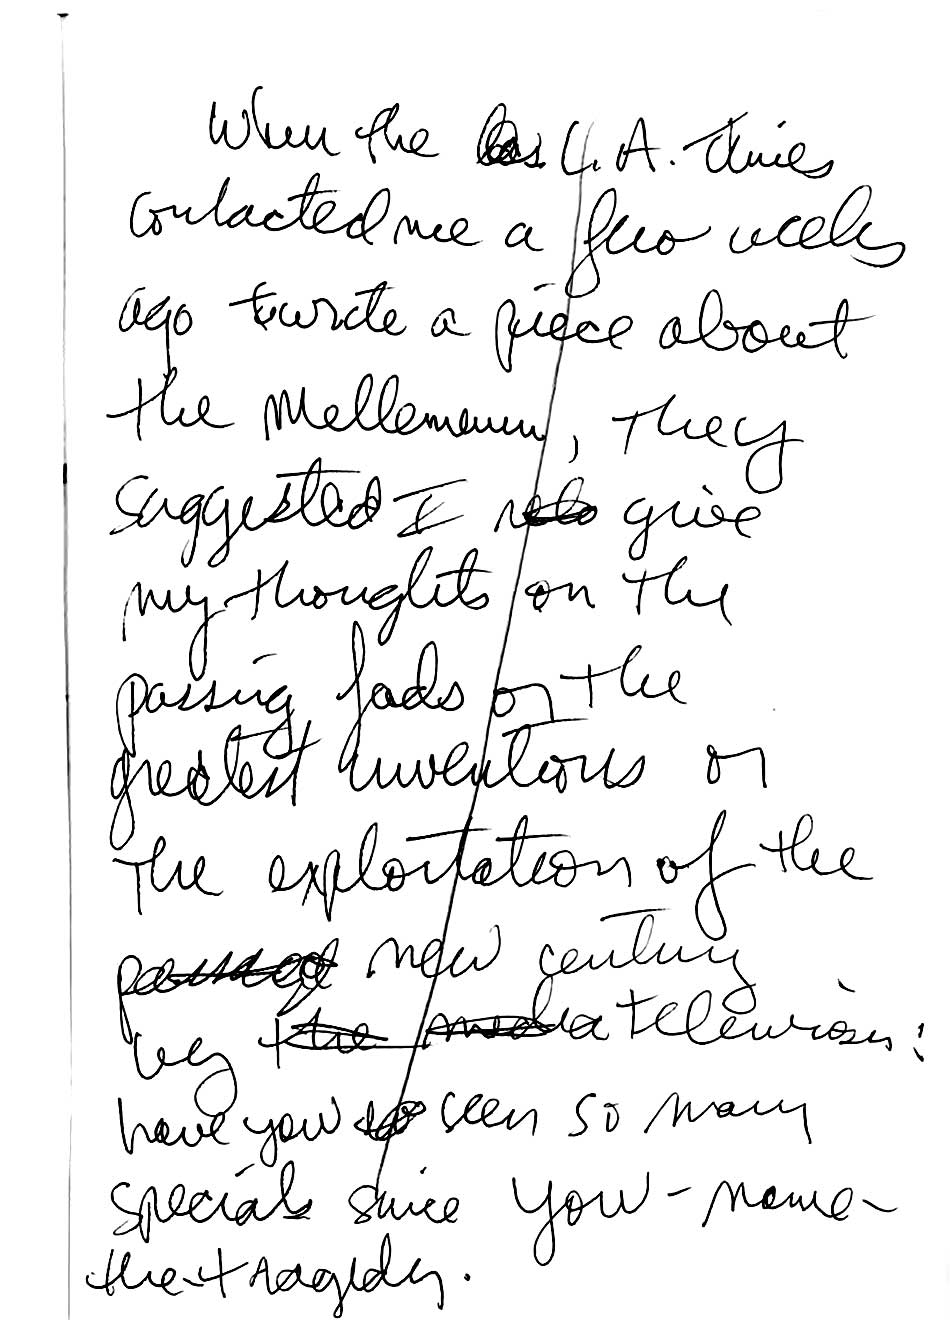 When the Los L.A. Times
contacted me a few weeks
ago to write a piece about
the Mellemeum, they
suggested I give
my thoughts on the
passing fads or the
greatest inventions or
the exploitation of the
passed new century
by the media television:
have you so seen so many
specials since you-name-
the-tragedy.